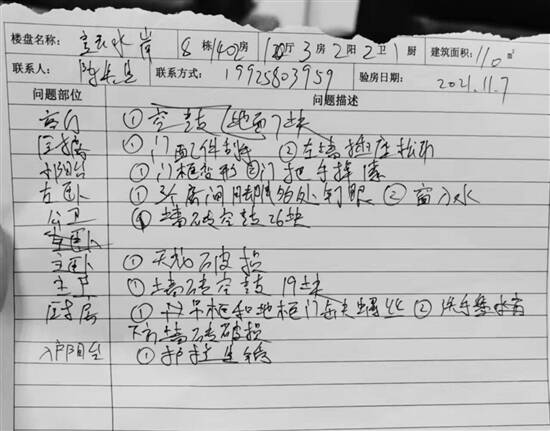 楼盘名称: 水岸 8 栋 1402房 厅 3 房 2 阳 2 卫 1 厨 建筑面积: 110 m²
联系人: 陈先生 联系方式: 19925803959 验房日期: 2021.11.7
问题部位 问题描述
客厅 ① 空鼓 (地面) 7块
厨房 ① 门配件 ② 左墙插座松动
阳台 ① 门框变形 ② 门把手掉漆
右卧 ① 3个房间 处钉眼 ② 窗入水
公卫 ① 墙砖空鼓26块
主卧
主卧 ① 天花破损
主卫 ① 墙砖空鼓19块
厨房 ① 吊柜和地柜门 螺丝 ② 洗手 水管
下方墙砖破损
入户阳台 ① 护栏生锈